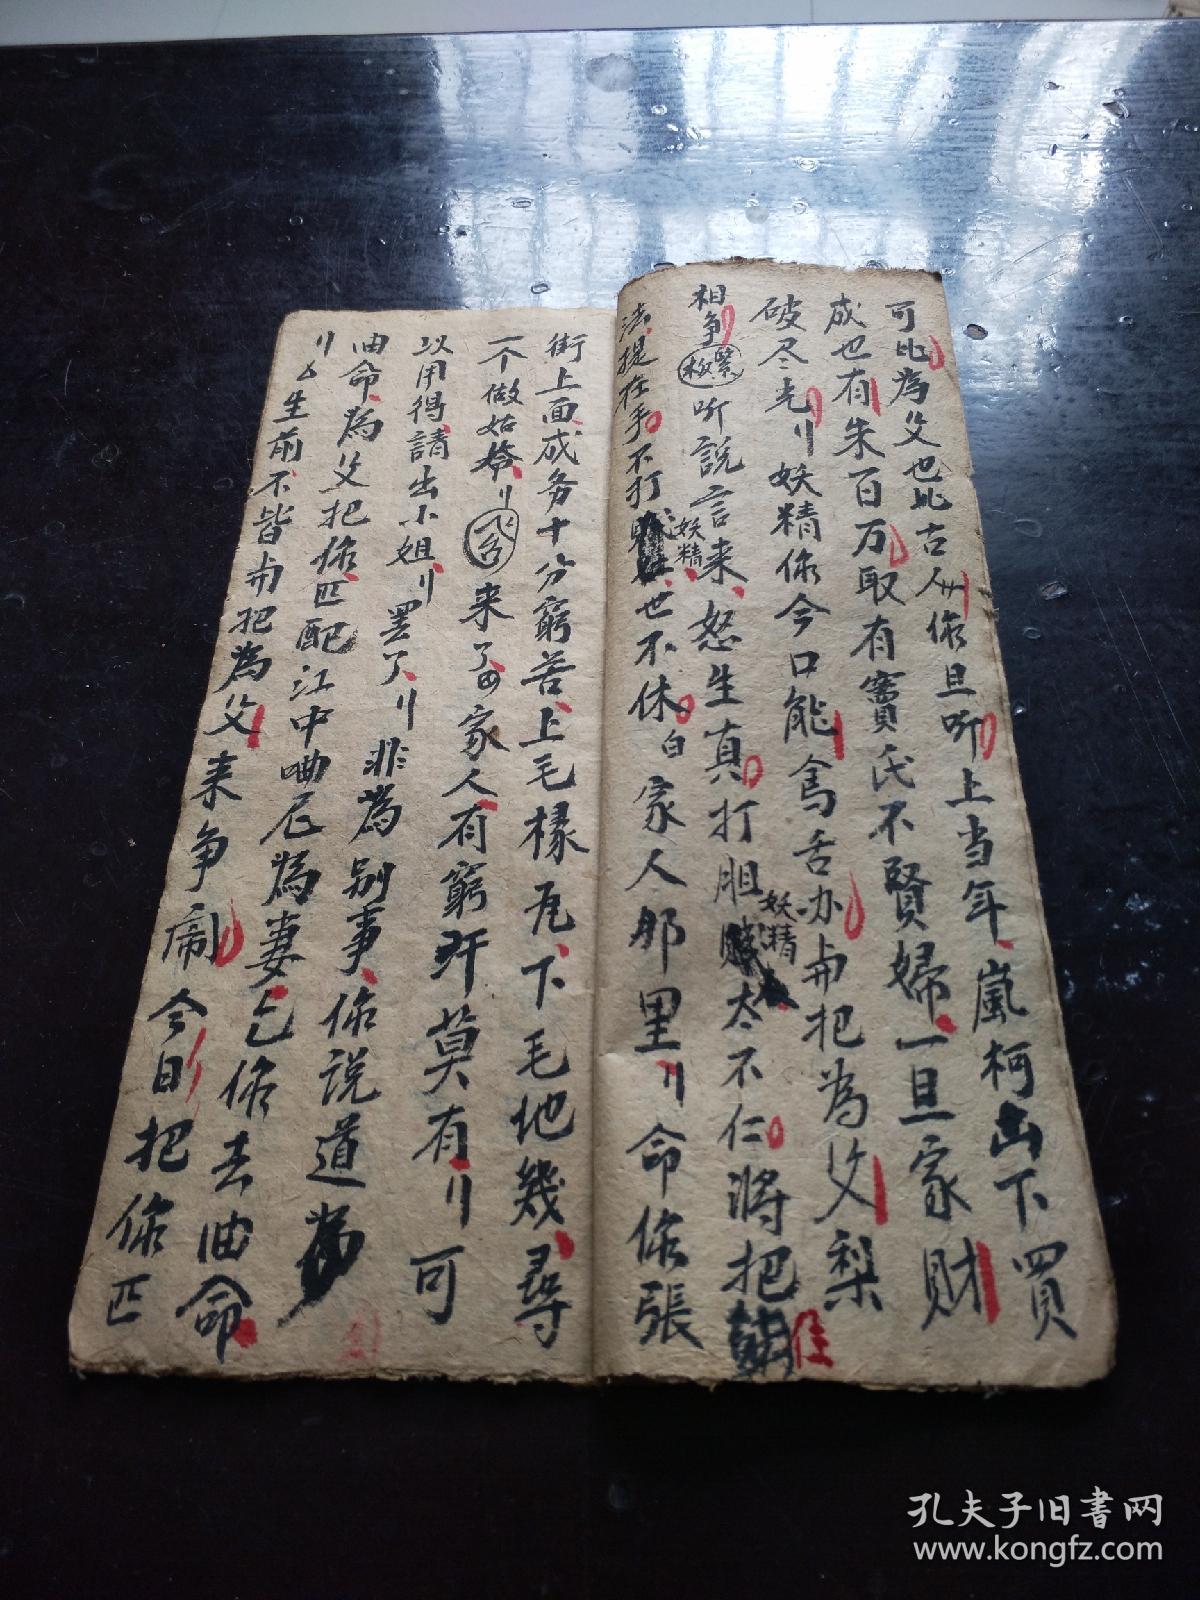 可比為父也比古人你旦听上当年嵐柯山下買
成也有朱百万取有竇氏不賢婦一旦家財
破尽光〢妖精你今口能舌办与把為父梨
相争緊板听說言来怒生真打胆妖精太不仁將把
法提在手不打妖精世不休白家人那里〢命你張
街上面成务十分窮苦上毛樣瓦下毛地幾尋
一个做姑〢来了白家人有窮玕莫有〢可
以用得請出小姐〢罢了〢非為别事你説道為
由命為父把你匹配江中尼為妻乞你去由命
〢厶生前不皆与把為父来争鬧今日把你匹
佳
孔夫子旧書网
www.kongfz.com